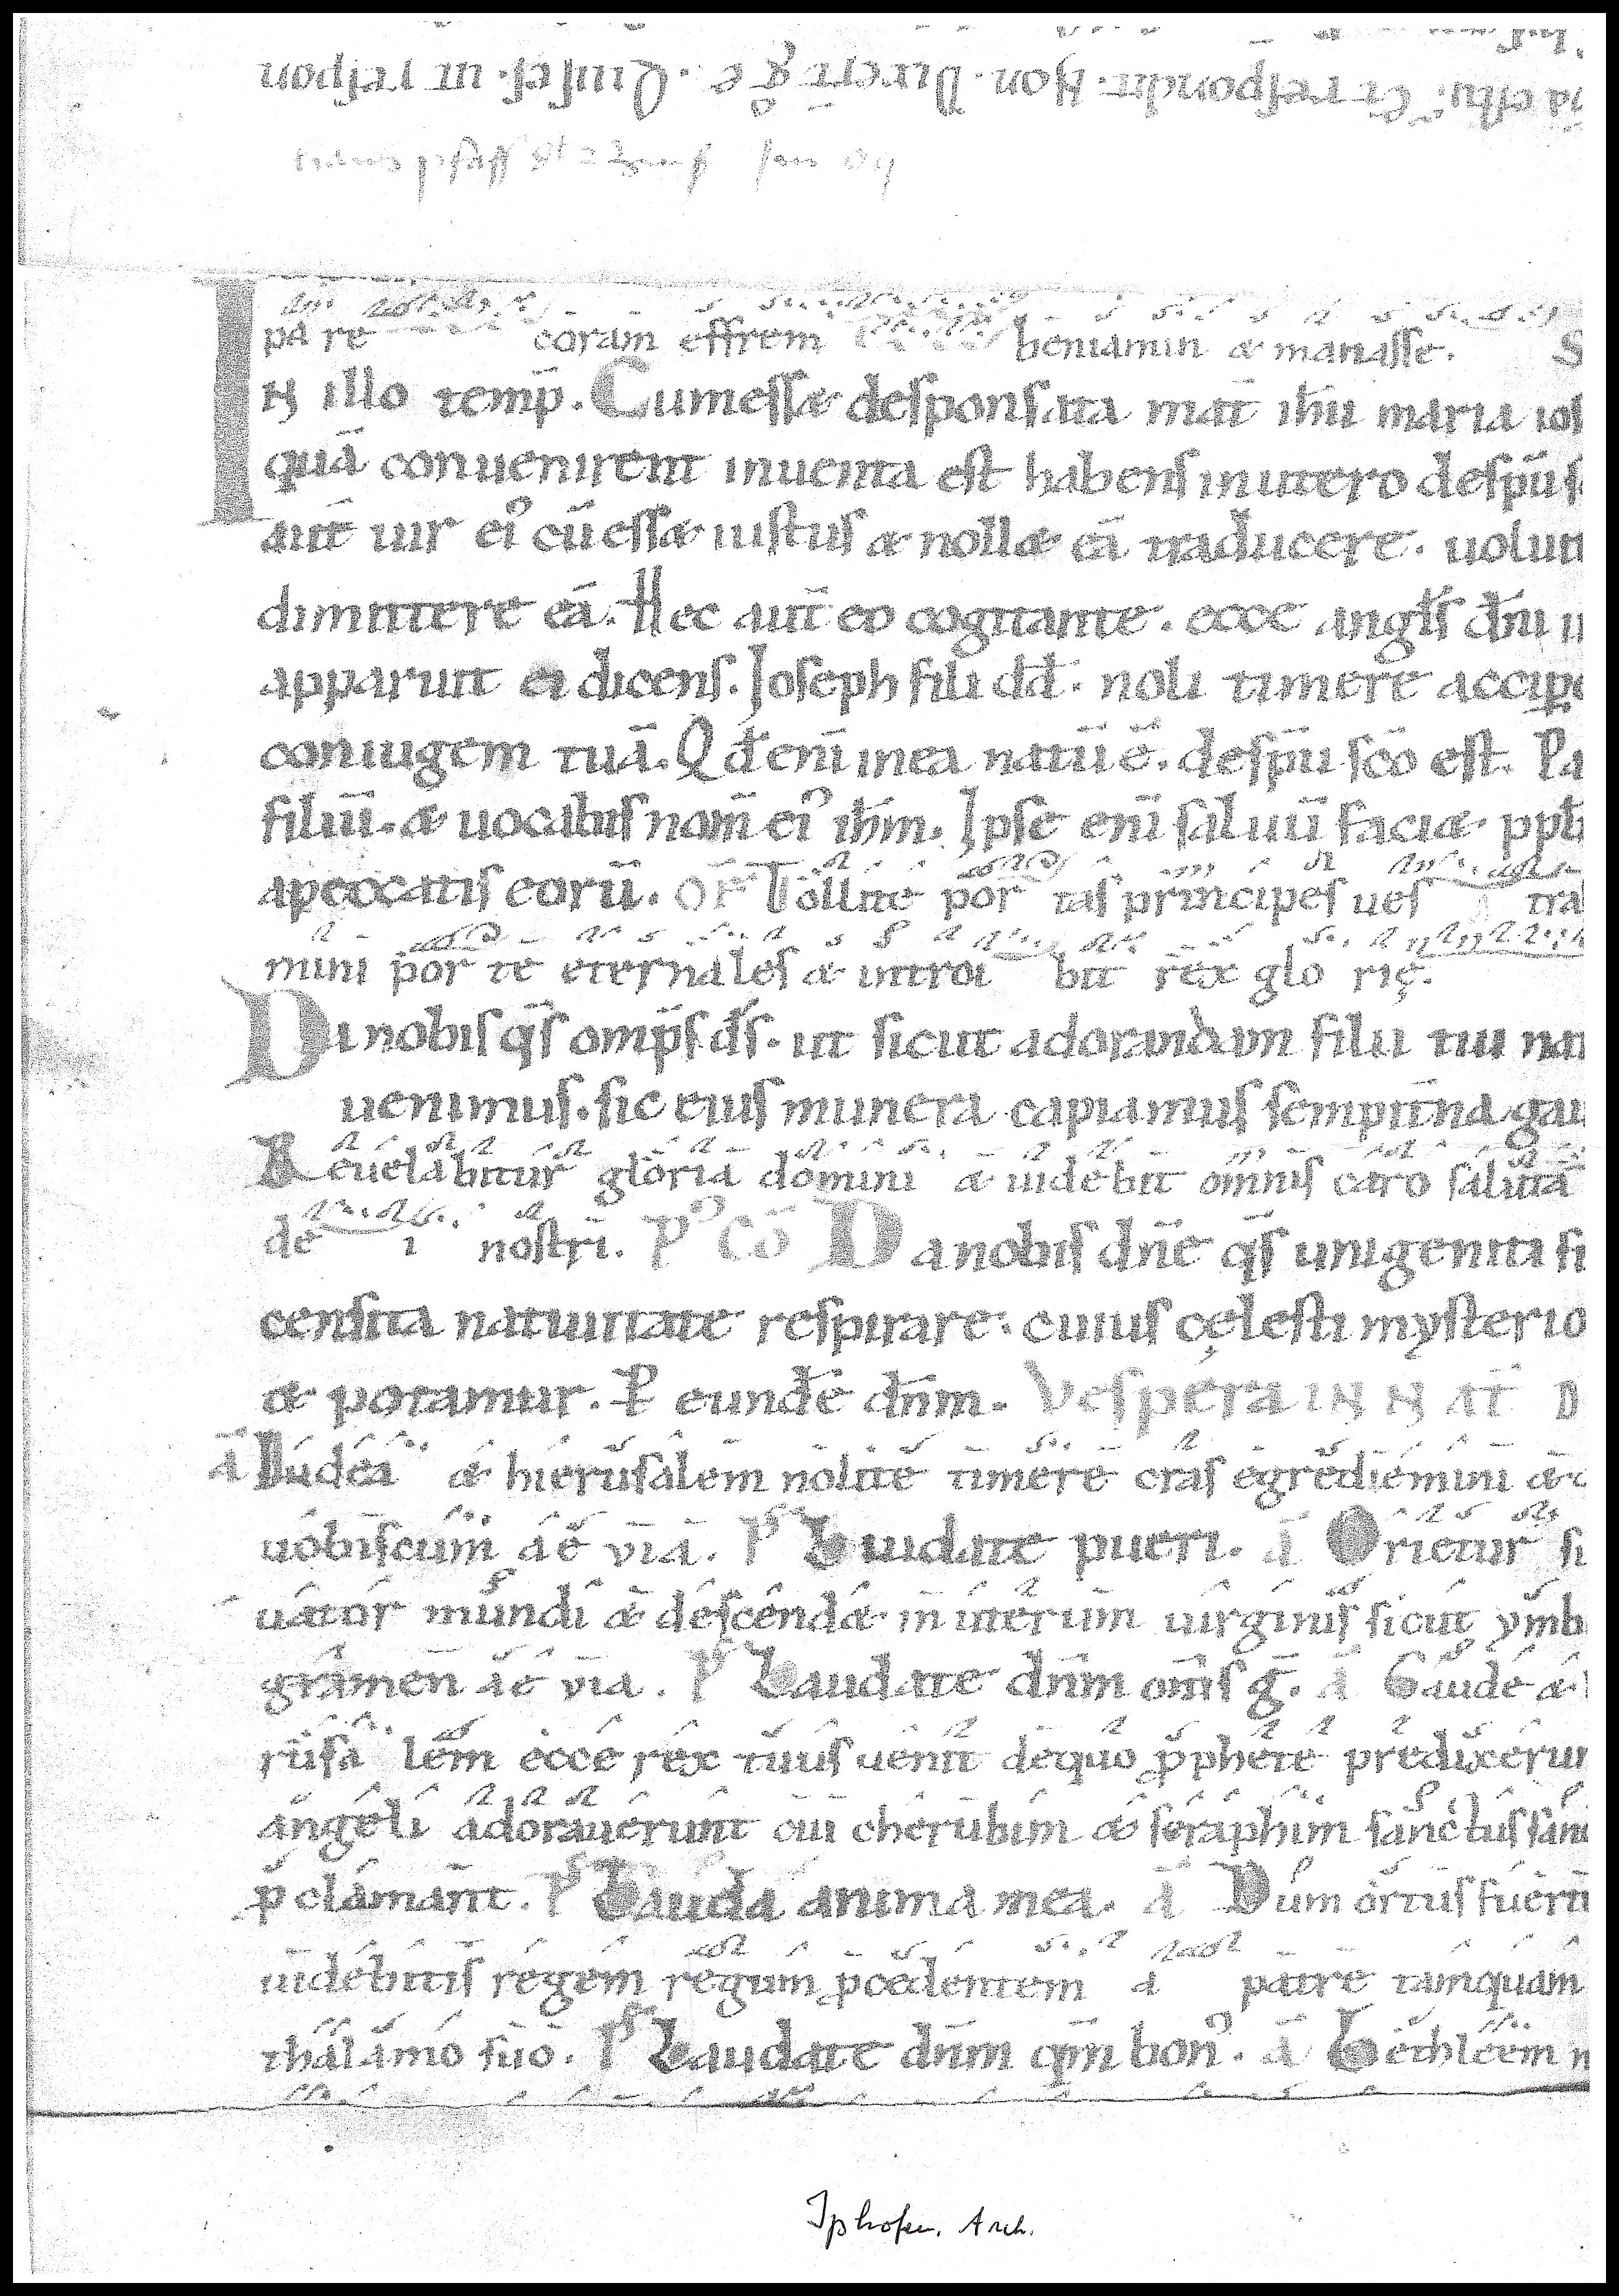 ia estis. Et respondit. Non. Dirige. Quiesce. in respon
pa re coram effrem beniamin & manasse. S
IN illo temp̄. Cum ess& desponsata mat̄ ih̄u maria ios
quā conuenirent inuenta est habens in utero de sp̄u s
aut̄ uir ei᷒ cū ess& iustus & noll& eā traducere. uolui
dimittere eā. Hec aut̄ eo cogitante. ecce angl̄s dn̄i i
apparuit ei dicens. Joseph fili dd̄. noli timere accipe
coniugem tuā. Qd̄ enī in ea natū ē. de sp̄u sc̄o est. Pa
filiū. & uocabis nom̄ ei᷒ ih̄m. Ipse enī saluū faci& ppl̄
a peccatis eorū. OF̄ Tollite por tas principes ues tra
mini por te eternales & introi bit rex glo rię.
Da nobis qs̄ omp̄s d̄s. ut sicut adorandam filii tui na
uenimus. sic eius munera capiamus sempit̄na gau
Reuelabitur gloria domini & uidebit omnis caro saluta
de i nostri. P᷒ Cō Da nobis dn̄e qs̄ unigeniti fi
censita natiuitate respirare. cuius cęlesti mysterio
& potamur. P eundē dn̄m. Vespera IN NAT̄ D
ā Iudea & hierusalem nolite timere cras egrediemini &
uobiscum aeuia. Ps Laudate pueri. ā Orietur si
uator mundi & descend& in uterum uirginis sicut ymb
gramen aeuia. Ps Laudate dn̄m om̄s ḡ. ā Gaude &
rusa lem ecce rex tuus uenit de quo pphete predixerun
angeli adorauerunt cui cherubim & seraphim sanctus san
pclamant. Ps Lauda anima mea. ā Dum ortus fuerit
uidebitis regem regum pcedentem a patre tamquam
thalamo suo. Ps Laudate dn̄m qm̄ bon᷒. ā Bethleem n
Iphofen. Arch.